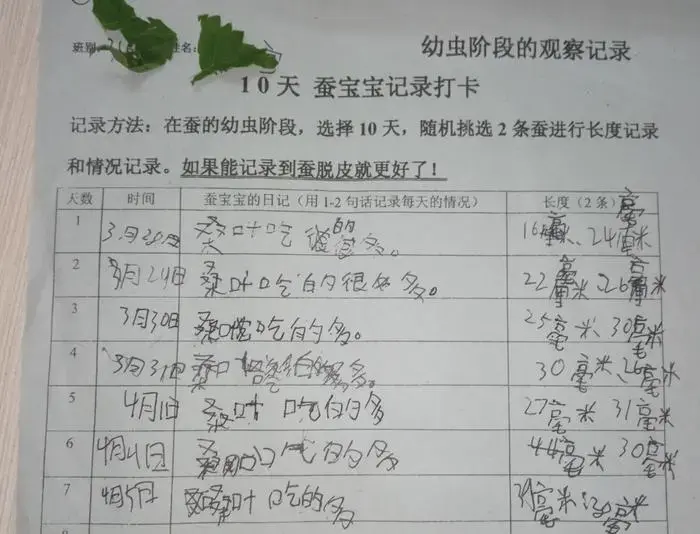 班别: 姓名:
幼虫阶段的观察记录
10天 蚕宝宝记录打卡
记录方法：在蚕的幼虫阶段，选择 10 天，随机挑选 2 条蚕进行长度记录
和情况记录。如果能记录到蚕脱皮就更好了！
天数 时间 蚕宝宝的日记（用 1-2 句话记录每天的情况） 长度（2 条）
1 桑叶吃的很多。 16毫米、24毫米
2 3月29日 桑叶吃的很多。 22毫米、26毫米
3 3月30日 吃的多。 25毫米、30毫米
4 3月31日 30毫米、26毫米
5 4月1日 桑叶吃的多 27毫米 31毫米
6 4月4日 吃的多 44毫米 30毫米
7 4月5日 桑叶吃的多 毫米 30毫米